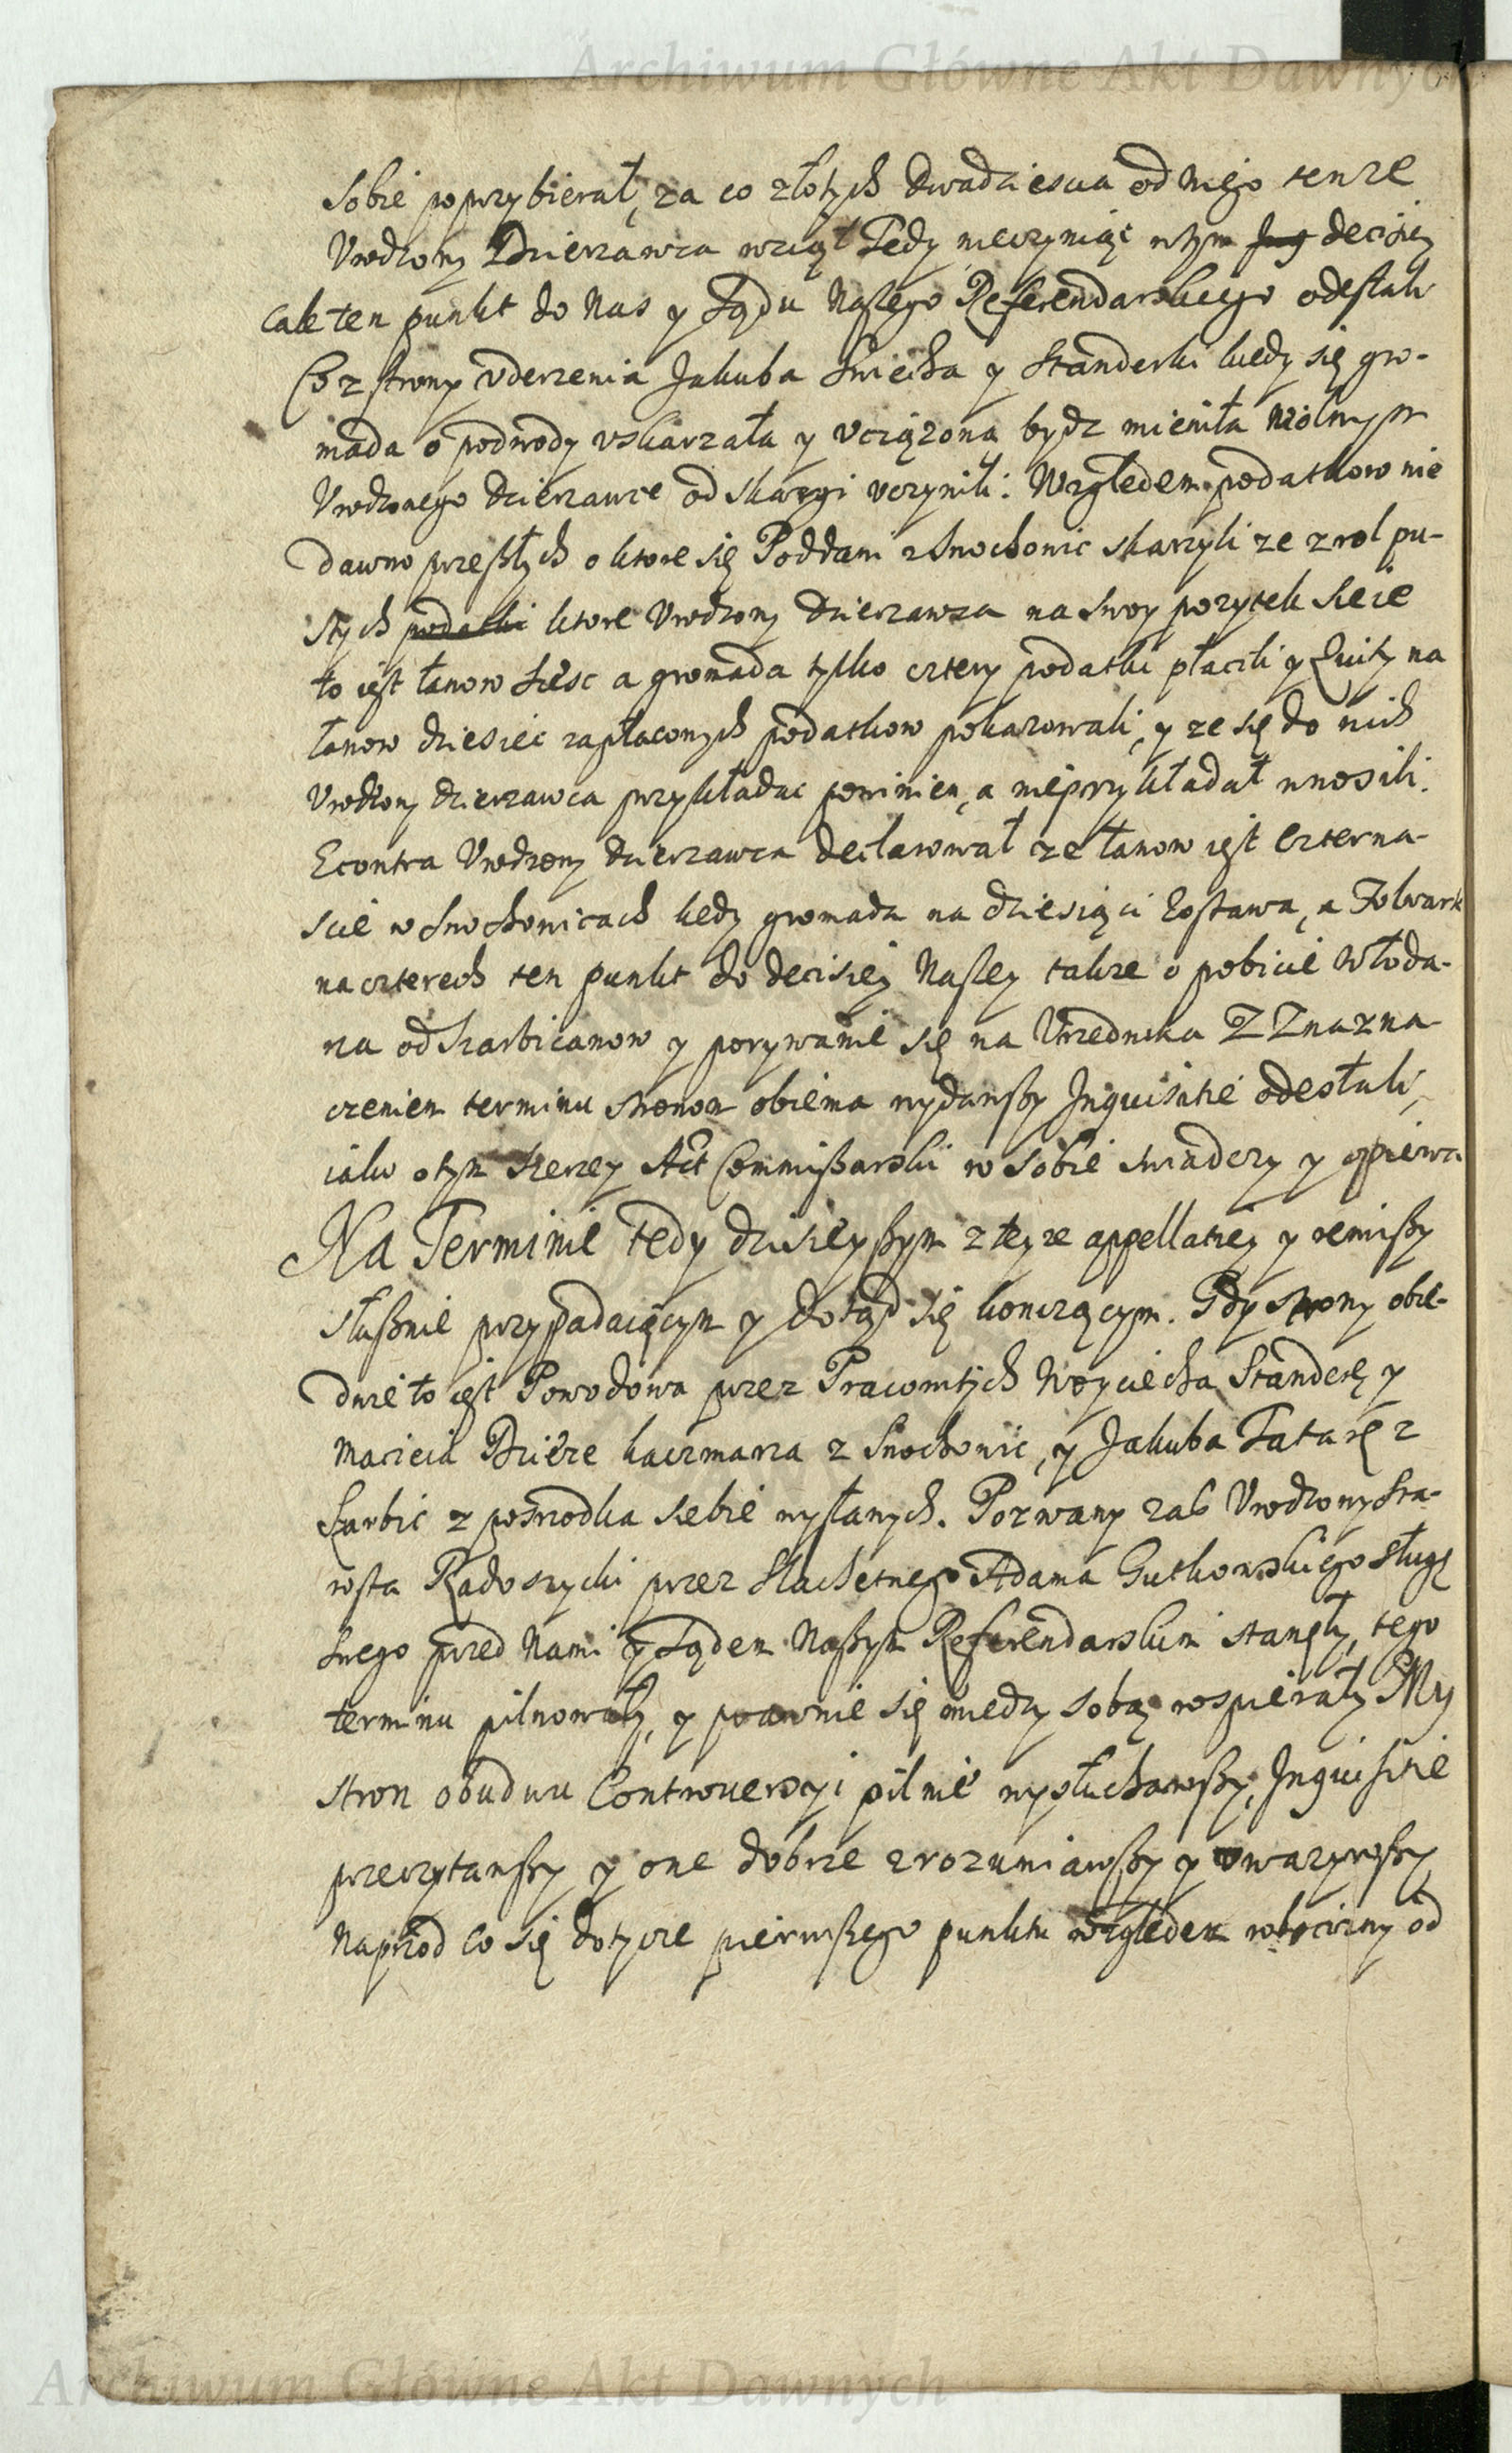 Archiwum Główne Akt Dawnych
sobie poprzybierał, za co złotych dwadziescia od niego tenze
Vrodzony Dzierzawca wziął Tedy nieczyniąc wtym decisiey
cale ten punkt do Nas y Sądu Naszego Referendarskiego odesłali
Co z strony vderzenia Jakuba Smiecha y Standerki kiedy się gro-
mada o podwody vskarzała y vciązoną bydz mieniła wolnym
Vrodzonego dzierzawce od skargi vczynili: Względem podatkow nie
dawno przeszłych o ktore się Poddani z Snochowic skarzyli ze z rol pu-
stych podatki ktore Vrodzony dzierzawca na swoy pozytek sieie
to iest łanow szesc a gromada tylko cztery podatki płacili y Quity na
łanow dziesiec zapłaconych podatkow pokazowali, y ze się do nich
Vrodzony dzierzawca przykładac powinien, a nieprzykładał wnosili.
Econtra Vrodzony dzierzawca declarował ze łanow iest czterna-
scie w Snochowicach kiedy gromada na dziesiąci zostawa, a Folwark
na czterech ten punkt do decisiey Naszey takze o pobicie włoda-
rza od Skarbicanow y porywanie się na Vrzednika z Znazna-
czeniem terminu stronom obiema wydawszy Inquisitie odesłali,
iako o tym szerzey Act Commissarski w sobie swiadczy y opiewa
Na Terminie tedy dzisieyszym z teyze appellatiey y remissy
słusznie przypadaiącym y dotąd się konczącym. Gdy strony obie-
dwie to iest Powodowa przez Pracowitych Woyciecha Standerę y
Macieia Dzieże kaczmarza z Snochowic, y Jakuba Tatarę z
Skarbic z posrodka siebie wysłanych. Pozwany zas Vrodzony Sta-
rosta Radoszycki przez Slachetnego Adama Gutkowskiego sługę
swego przed Nami y Sądem Naszym Referendarskim stanęły, tego
terminu pilnowały, y prawnie się miedzy sobą rospierały My
stron obudwu Controuersyi pilnie wysłuchawszy, Inquisitie
przeczytawszy y one dobrze zrozumiawszy y vwazywszy
Naprzod co się dotycze pierwszego punktu względem włoczizny od
Archiwum Główne Akt Dawnych